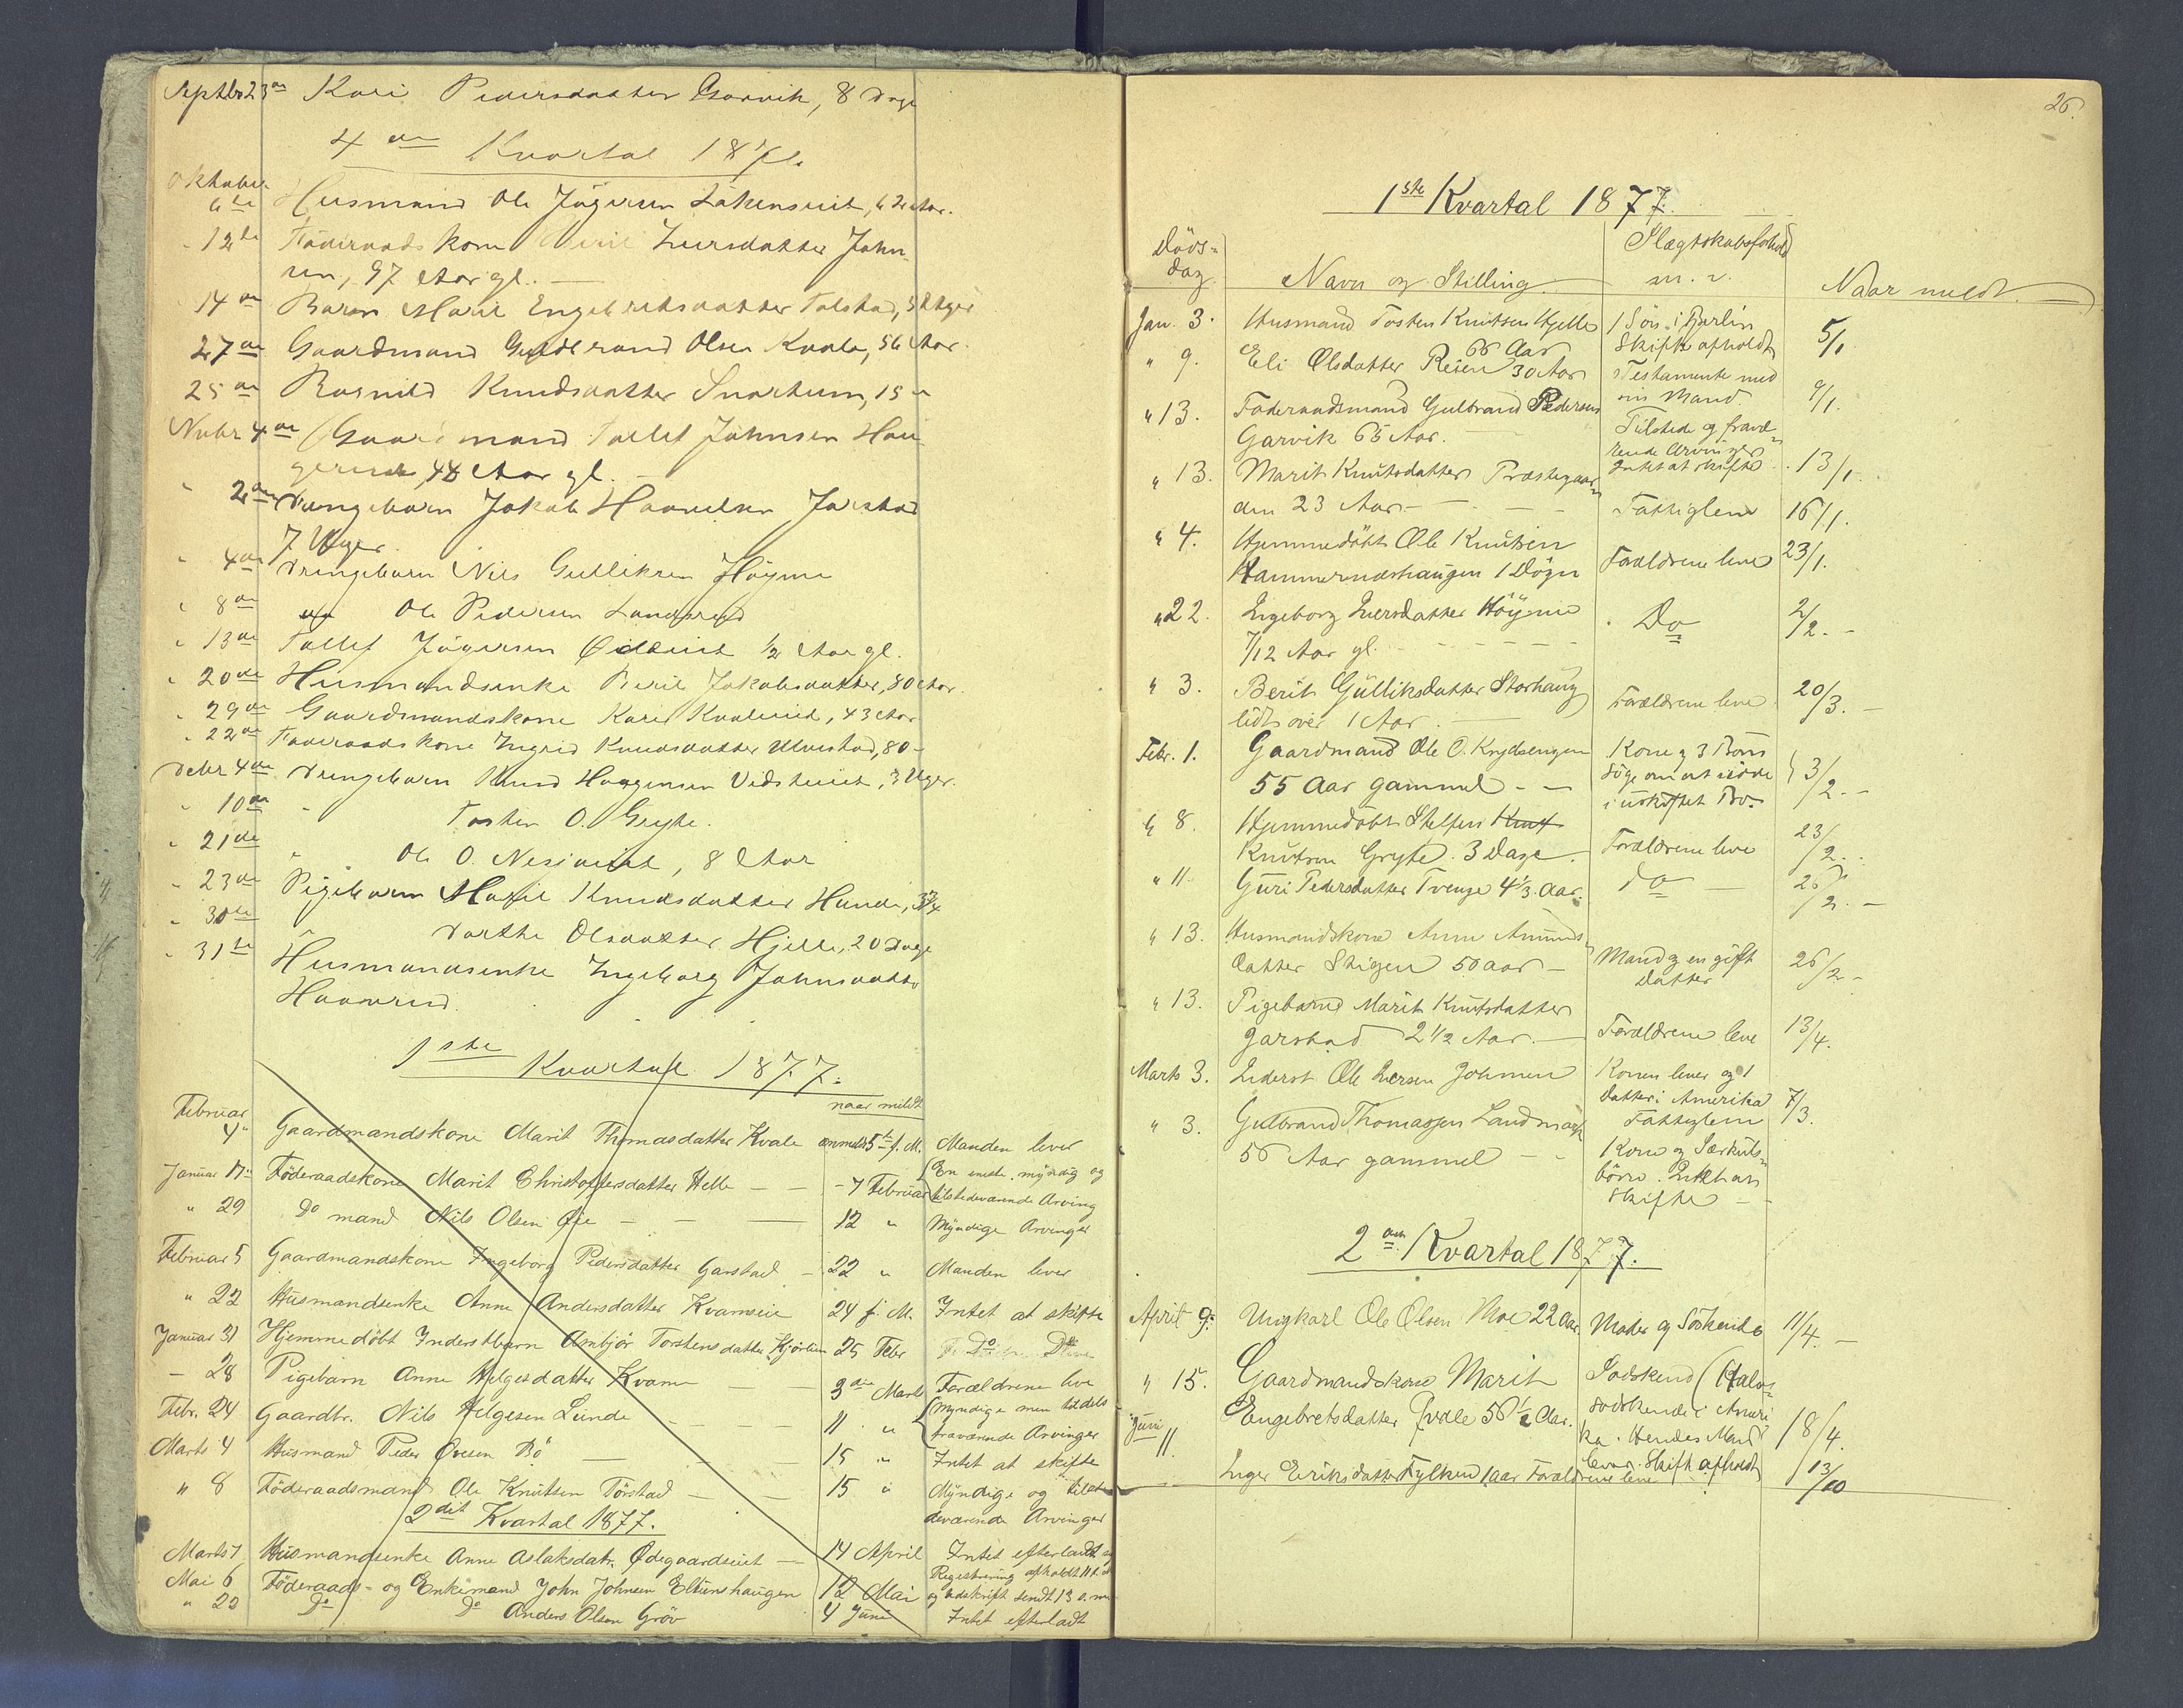 Septbr 23de Kari Pedersdatter Garvik, 8 Dage
4de Kvartal 1876.
Oktober
6te Husmand Ole Jögersen Lökenseiet, 62 Aar.
" 12te Föderaadskone Berit Iversdatter John-
sen, 97 Aar gl. —
14de Barn Marit Engebretsdatter Tolstad, 3 Uger
27de Gaardmand Guldbrand Olsen Kvale, 56 Aar.
25de Ragnild Knudsdatter Snortum, 15 "
Nvbr 4de Gaardmand Tollef Johnsen Hau-
gerud, 48 Aar gl. —
" 2den Drengebarn Jakob Haavelsen Jarstad
7 Uger.
" 4de Drengebarn Nils Gulliksen Höyme
" 8de do Ole Pedersen
" 13de Tollef Jögersen Ödeeiet 1/2 Aar gl.
" 20de Husmandsenke Berit Jakobsdatter, 80 Aar.
" 29de Gaardmandskone Kari Kvaleeiet, 43 Aar
" 22de Föderaadskone Ingrid Knudsdatter Ulvestad, 80 -
Debr 4de Drengebarn Knud Haagensen Vidsteeiet, 3 Uger.
" 10de " Tosten O. Gryte.
" 21de " Ole O. Neseiet, 8 Aar
" 23de Pigebarn Marit Knudsdatter Hande, 3 3/4
" 30te " Dorthe Olsdatter Hjelle, 20 Dage
" 31te Husmandsenke Ingeborg Johnsdatter
Haavrud.
1ste Kvartal 1877.
naar meldt
Februar
4. Gaardmandskone Marit Thomasdatter Kvale anmeldt 5te f. M. Manden lever
Januar 17. Föderaadskone Marit Christoffersdatter Helle — — 7 Februar En eneste, myndig og
tilstedeværende Arving
" 29 Do mand Nils Olsen Öie — — — 12 " Myndige Arvinger
Februar 5 Gaardmandskone Ingeborg Pedersdatter Garstad — 22 " Manden lever
" 22 Husmandsenke Anne Andersdatter Kvamseie 24 f. M. Intet at skifte
Januar 31 Hjemmedöbt Inderstbarn Ambjör Torstensdatter Hjörlien 25 Febr Do
— 28 Pigebarn Anne Helgesdatter Kvam — — 3die Marts Forældrene leve
Febr. 24 Gaardbr. Nils Helgesen Lunde — — — 11 " Myndige men tildels
fraværende Arvinger
Marts 4 Husmand Peder Ovesen Bö — — — 15 " Intet at skifte
" 8 Föderaadsmand Ole Knutsen Törstad — — 15 " Myndige og tilste-
deværende Arvinger
2det Kvartal 1877.
Marts 7 Husmandsenke Anne Aslaksdatr. Ödegaardseiet — 14 April Intet efterladt
Mai 6 Föderaads- og Enkemand John Johnsen Eltunshaugen 12 Mai Registrering afholdt 11te
og udskrift sendt 13 s. m.
" 20 Do Do Anders Olsen Gröv 4 Juni Intet efterladt
26.
1ste Kvartal 1877.
Döds-
dag Navn og Stilling. Slægtskabsforhold
m. v. Naar meldt.
Jan. 3. Husmand Tosten Knutsen Hjelle 1 Sön i Berlin 5/1
66 Aar Skifte afholdt
" 9. Eli Olsdatter Reien 30 Aar Testamente med
sin Mand. 9/1.
" 13. Föderaadsmand Gulbrand Pedersen Tilstede og fravæ-
Garvik 65 Aar. — rende Arvinger
Intet at skifte. 13/1.
" 13. Marit Knutsdatter Præstegaar-
den 23 Aar — — — Fattiglem 16/1.
" 4. Hjemmedöbt Ole Knutsen
Hammernæshaugen 1 Dögn Forældrene leve 23/1.
" 22. Ingeborg Iversdatter Höyme Do 2/2. -
7/12 Aar gl. - - - -
" 3. Berit Gulliksdatter Storhaug Forældrene leve 20/3. —
lidt over 1 Aar. —
Febr. 1. Gaardmand Ole O. Krydsengen Kone og 3 Börn
55 Aar gammel - — söge om at sidde 3/2. -
i uskiftet Bo.
" 8. Hjemmedöbt Steffen Knut
Knutsen Gryte. 3 Dage. Forældrene leve 23/2.
" 11. Guri Pedersdatter Tvenge 4 1/3 Aar. do — 26/2. —
" 13. Husmandskone Anne Amunds-
datter Stigen 50 Aar — Mand og en gift
datter 26/2 -
" 13. Pigebarn Marit Knutsdatter
Garstad 2 1/2 Aar. — Forældrene leve 13/4.
Marts 3. Inderst Ole Iversen Johnsen Konen lever og 1
datter i Amerika 7/3.
Fattiglem
" 3. Gulbrand Thomassen Landmark
56 Aar gammel — - Kone og Særkuls-
börn. Intet at
skifte —
2det Kvartal 1877.
April 9. Ungkarl Ole Olsen Moe 22 Aar. Moder og Södskende 11/4. —
" 15. Gaardmandskone Marit Södskend (Halv-
Engebretsdatter Kvale 56 1/2 Aar. södskende i Ameri-
ka. Hendes Mand 18/4.
lever. Skifte afholdt
Juni
11. Inger Eriksdatter Fylken 1 Aar Forældrene leve 13/10